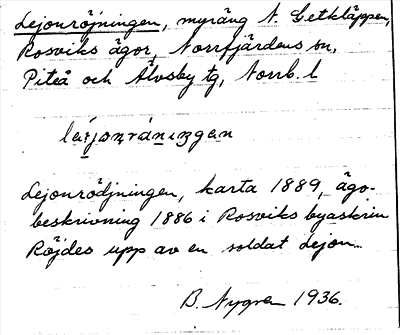 Lejonröjningen, myräng N. Getkläppen,
Rosviks ägor, Norrfjärdens sn,
Piteå och Älvsby tg, Norrb. l
Lejonrödjningen, karta 1889, ägo-
beskrivning 1886 i Rosviks byaskrin
Röjdes upp av en soldat Lejon.
B. Nygren 1936.